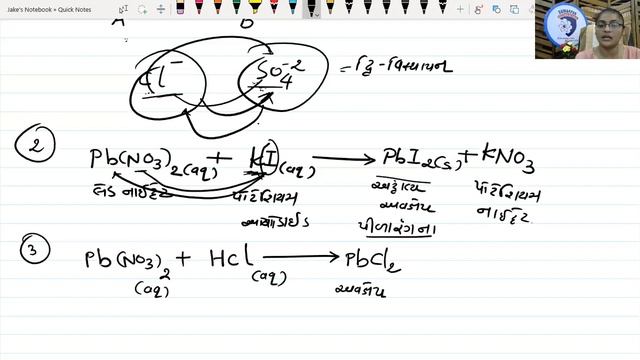 Jake's Notebook » Quick Notes
A B
Cl⁻ SO₄⁻² = દ્વિ-વિસ્થાપન
2 Pb(NO3)2(aq) + KI(aq) → PbI2(s) + KNO3
લેડ નાઈટ્રેટ પોટેશિયમ આયોડાઈડ અવક્ષેપ પોટેશિયમ નાઈટ્રેટ
પીળા રંગના
3 Pb(NO3)2 + HCl → PbCl2
(aq) (aq) અવક્ષેપ